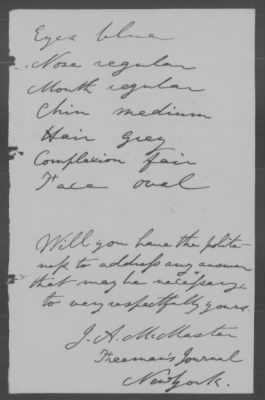 Eyes blue
Nose regular
Mouth regular
Chin medium
Hair grey
Complexion fair
Face oval
Will you have the polite-
ness to address any answer
that may be necessary,
to very respectfully yours.
J. A. McMaster
Freeman's Journal
New York.